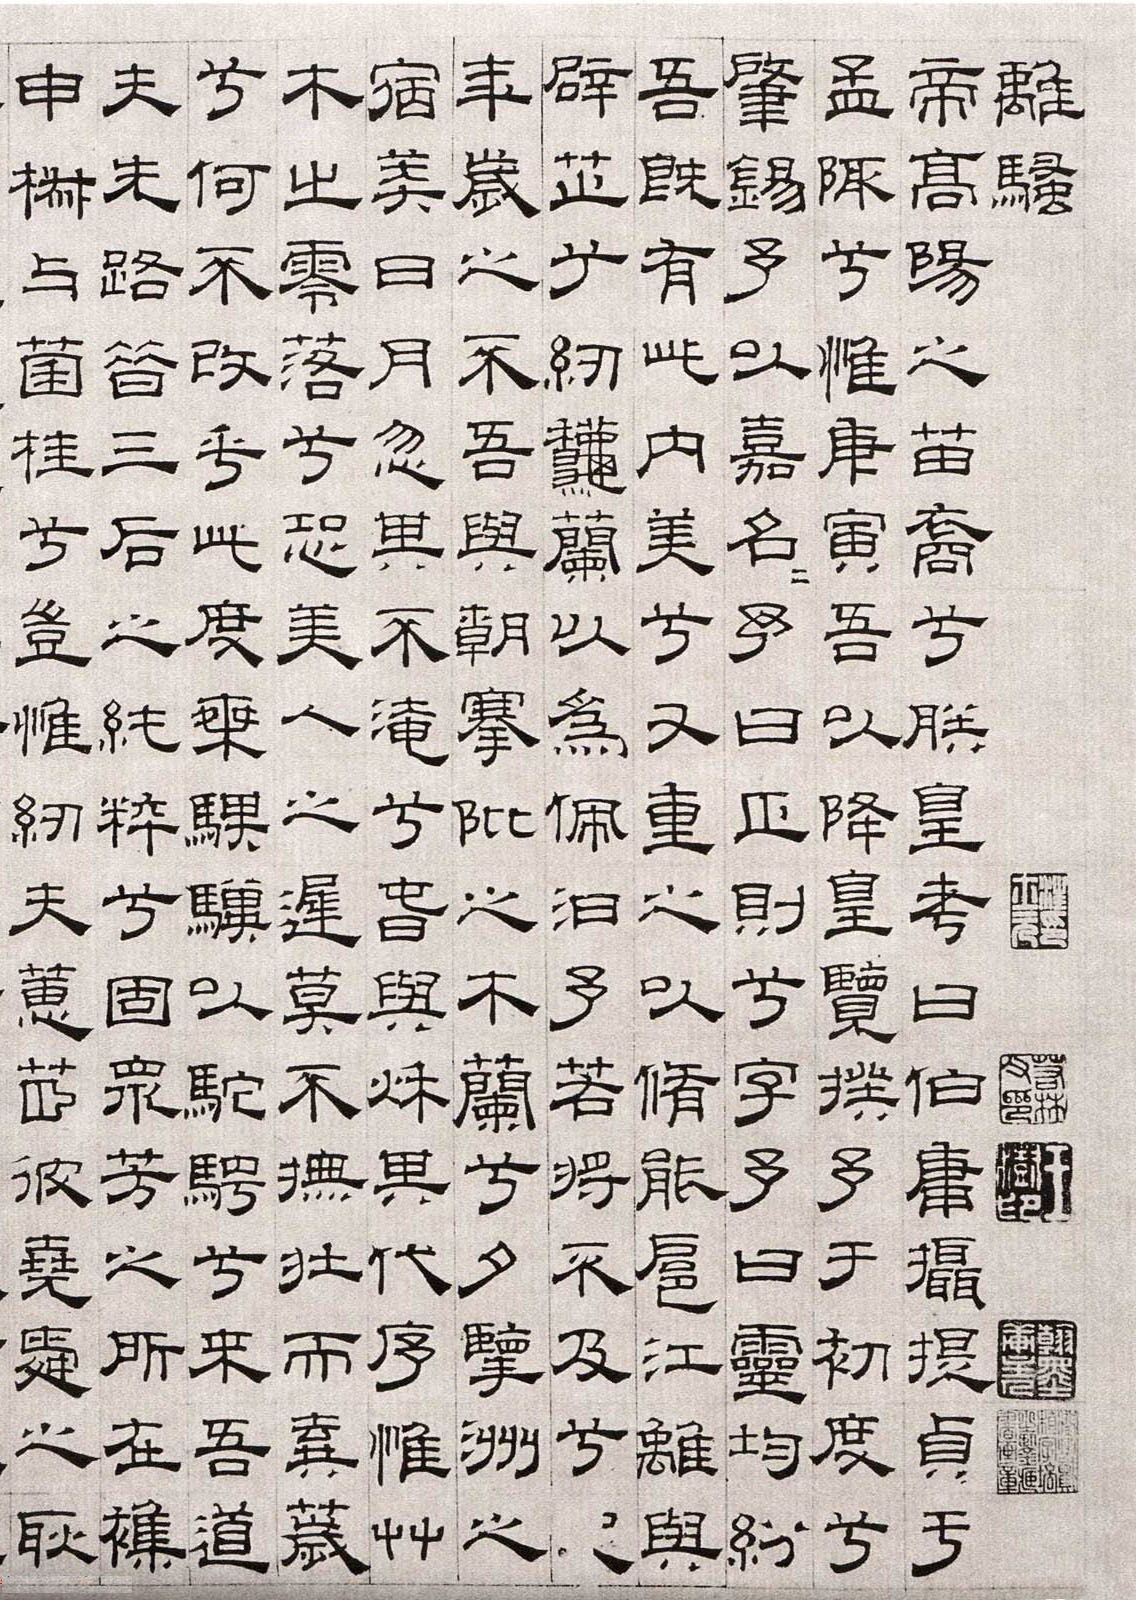 離騷
帝高陽之苗裔兮朕皇考曰伯庸攝提貞于
孟陬兮惟庚寅吾以降皇覽揆予于初度兮
肇錫予以嘉名二予曰正則兮字予曰靈均紛
吾既有此內美兮又重之以脩能扈江離與
辟芷兮紉龝蘭以為佩汩予若將不及兮
年歲之不吾與朝搴阰之木蘭兮夕擥洲之
宿莽日月忽其不淹兮春與秋其代序惟艸
木之零落兮恐美人之遲莫不撫壯而棄薉
兮何不改乎此度椉騏驥以駝騁兮來吾道
夫先路昔三后之純粹兮固眾芳之所在襍
申椒与菌桂兮豈惟紉夫蕙茝彼堯舜之耿